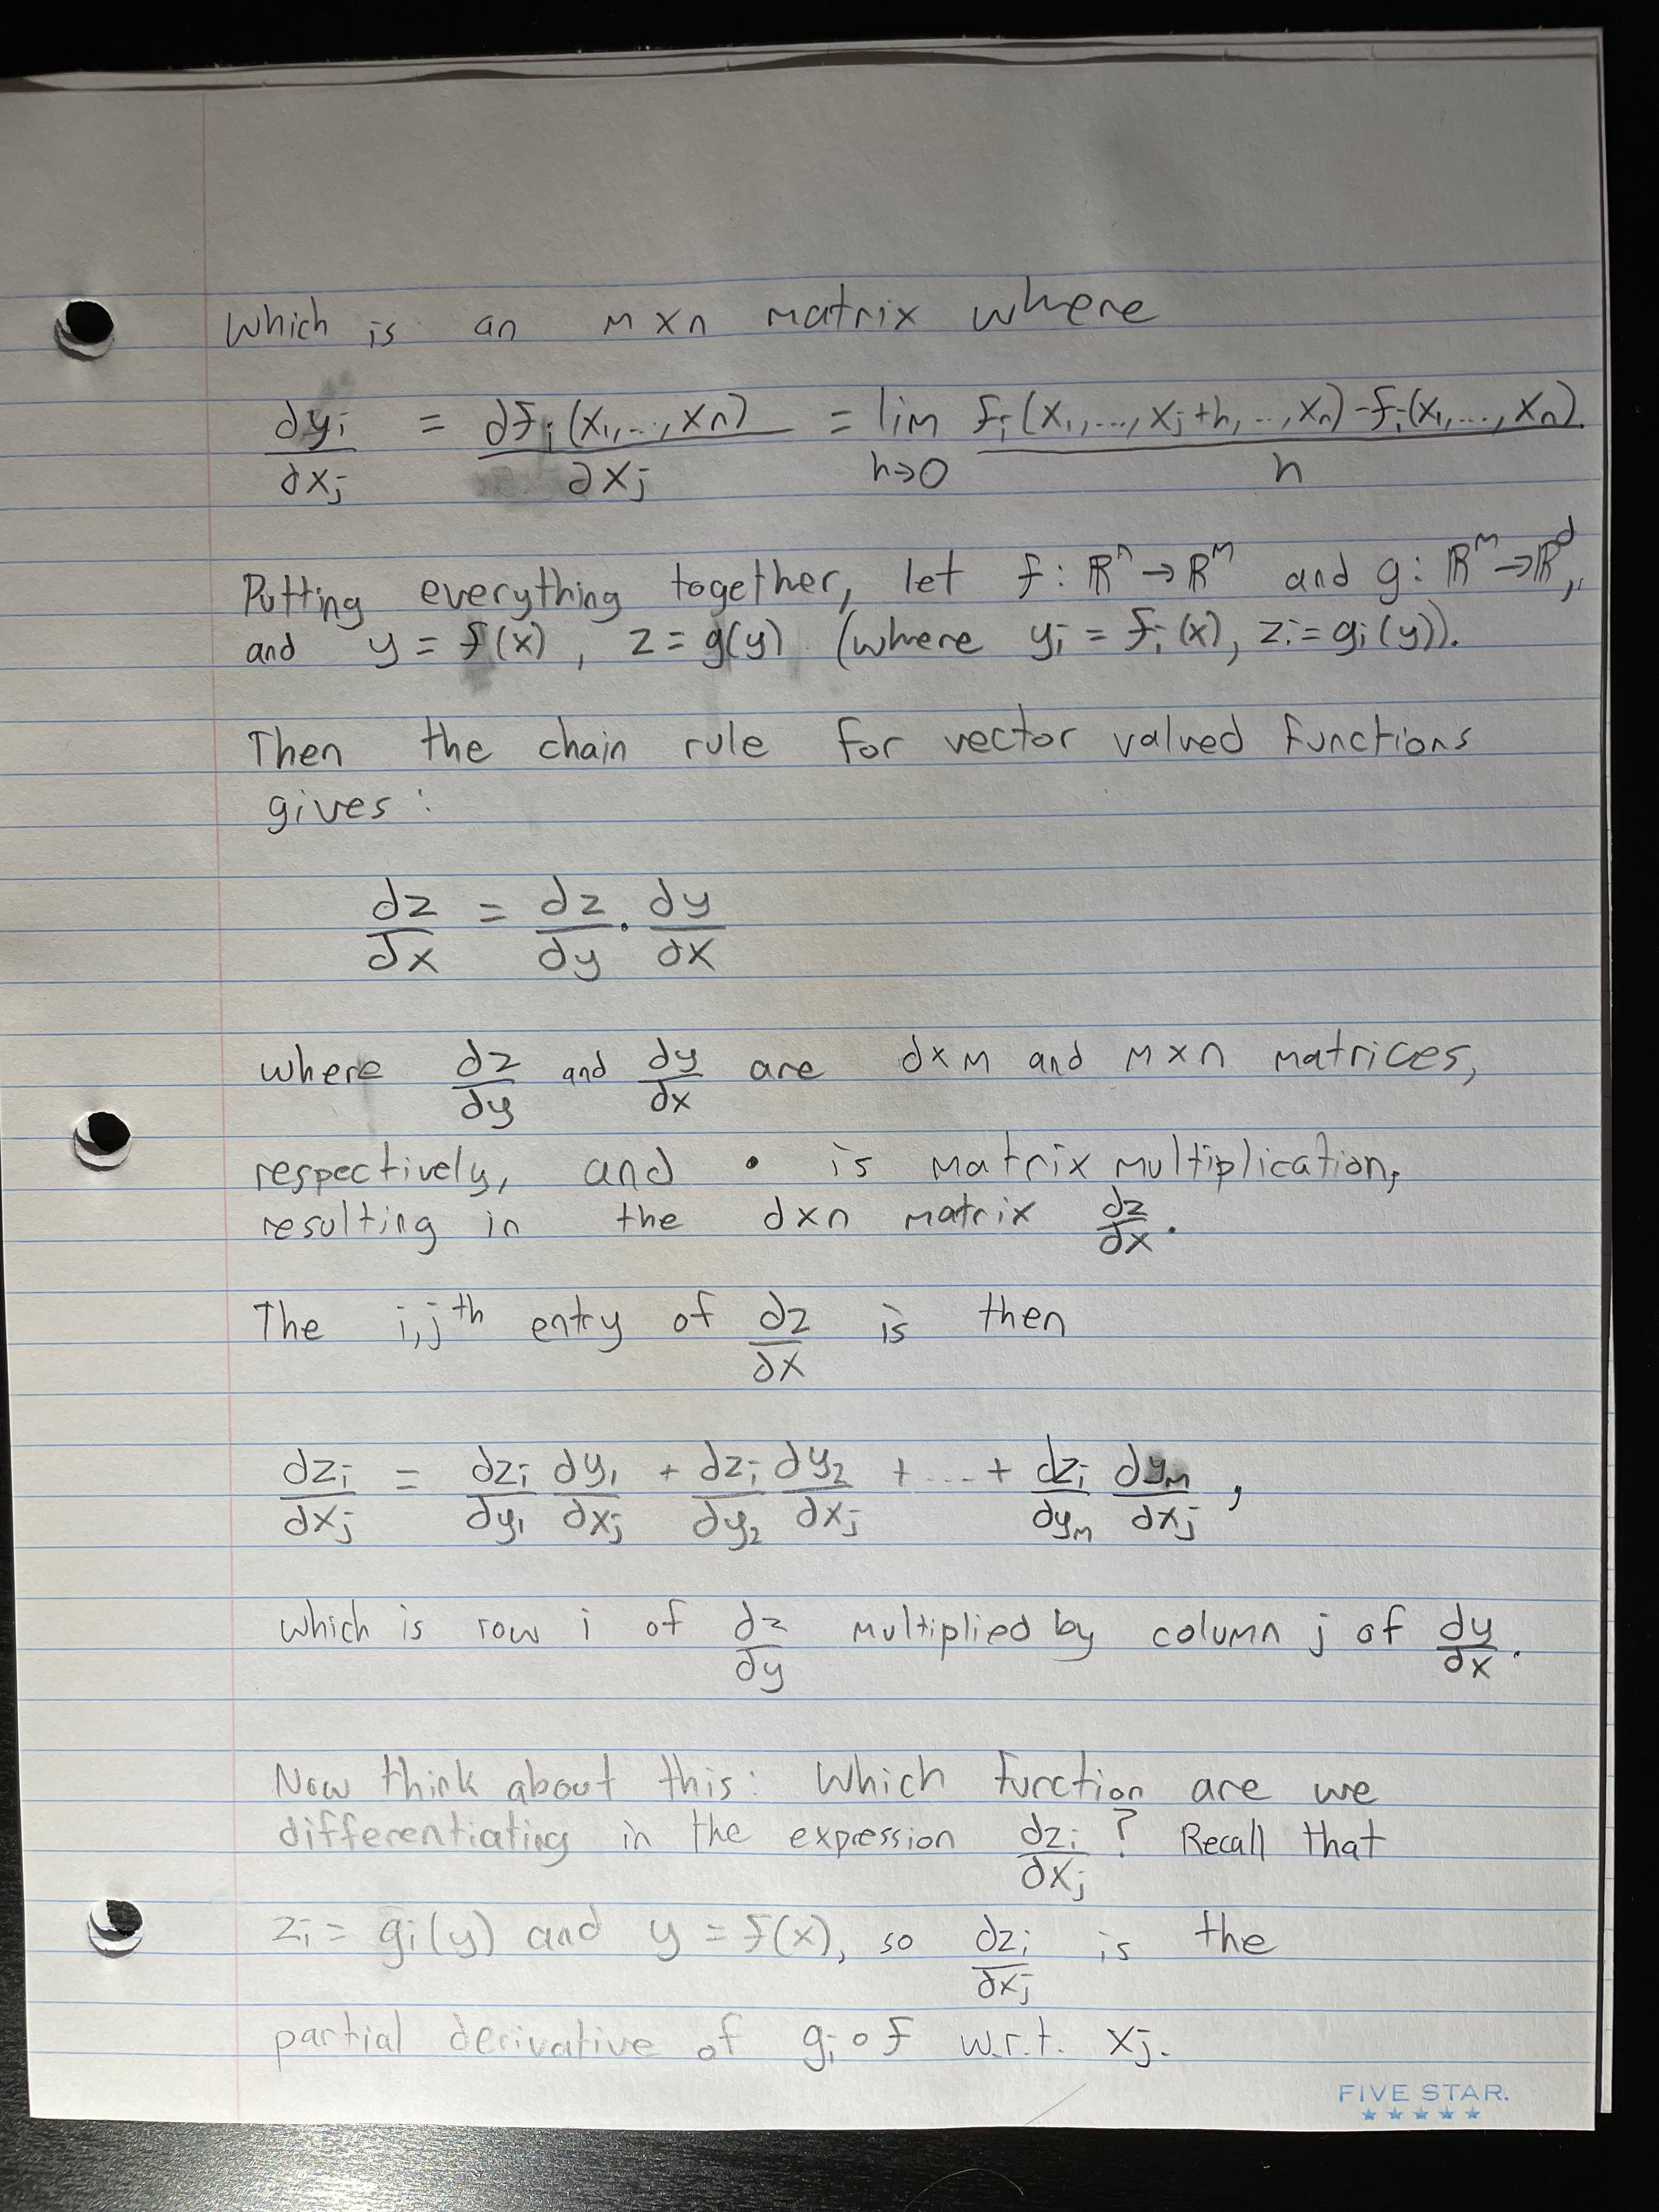 Which is an m x n matrix where
∂yi/∂xj = ∂fi(x1,...,xn)/∂xj = lim h→0 fi(x1,...,xj+h,...,xn)-fi(x1,...,xn)/h
Putting everything together, let f: ℝⁿ → ℝᵐ and g: ℝᵐ → ℝᵈ,
and y = f(x), z = g(y) (where yi = fi(x), zi = gi(y)).
Then the chain rule for vector valued functions
gives:
∂z/∂x = ∂z/∂y · ∂y/∂x
where ∂z/∂y and ∂y/∂x are d x m and m x n matrices,
respectively, and · is matrix multiplication,
resulting in the d x n matrix ∂z/∂x.
The i,jth entry of ∂z/∂x is then
∂zi/∂xj = ∂zi/∂y1 ∂y1/∂xj + ∂zi/∂y2 ∂y2/∂xj + ... + ∂zi/∂ym ∂ym/∂xj,
which is row i of ∂z/∂y multiplied by column j of ∂y/∂x.
Now think about this: Which function are we
differentiating in the expression ∂zi/∂xj? Recall that
zi = gi(y) and y = f(x), so ∂zi/∂xj is the
partial derivative of gi∘f w.r.t. xj.
FIVE STAR.